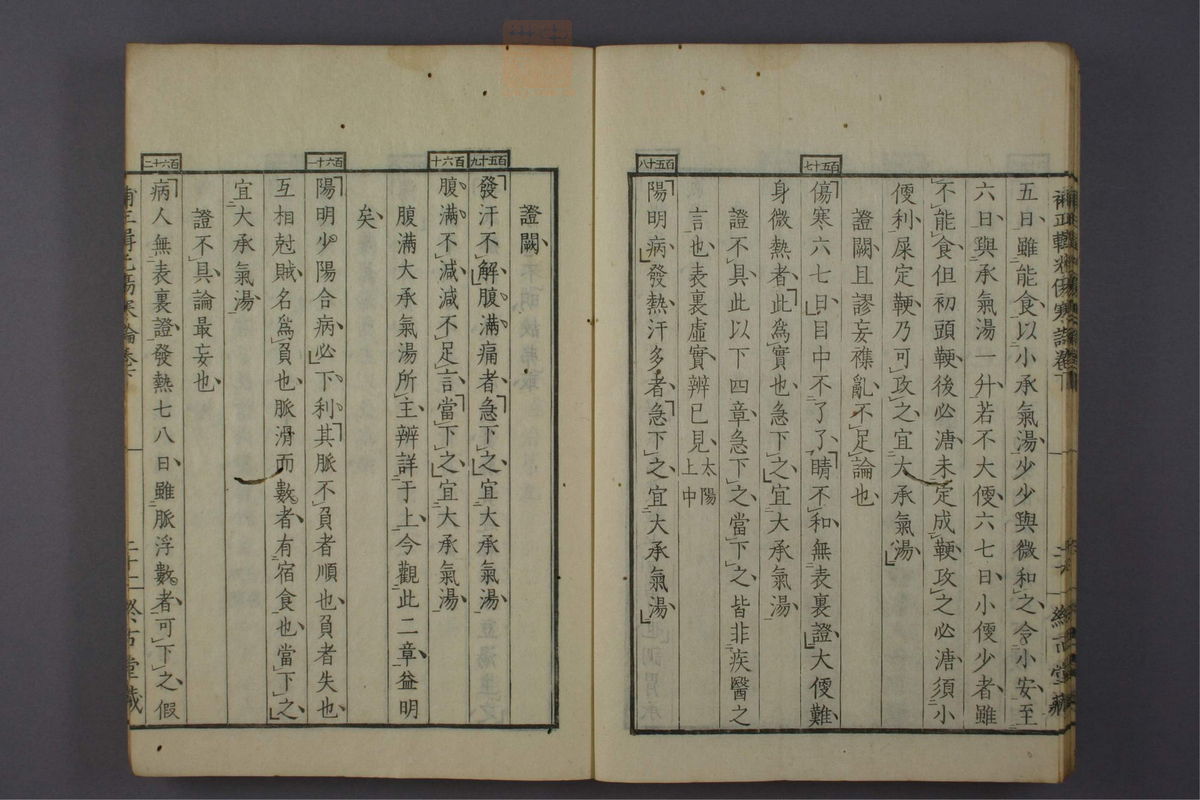 補正輯光傷寒論卷下
五日雖能食以小承氣湯少少與微和之令小安至
六日與承氣湯一升若不大便六七日小便少者雖
不能食但初頭鞕後必溏未定成鞕攻之必溏須小
便利屎定鞕乃可攻之宜大承氣湯
證闕且謬妄襍亂不足論也
百五十七
傷寒六七日目中不了了睛不和無表裏證大便難
身微熱者此爲實也急下之宜大承氣湯
證不具此以下四章急下之當下之皆非疾醫之
言也表裏虛實辨已見太陽上中
百五十八
陽明病發熱汗多者急下之宜大承氣湯
證闕
百五十九
發汗不解腹滿痛者急下之宜大承氣湯
百六十
腹滿不減減不足言當下之宜大承氣湯
腹滿大承氣湯所主辨詳于上今觀此二章益明
矣
百六十一
陽明少陽合病必下利其脈不負者順也負者失也
互相尅賊名爲負也脈滑而數者有宿食也當下之
宜大承氣湯
證不具論最妄也
百六十二
病人無表裏證發熱七八日雖脈浮數者可下之假
二十二 終古堂藏